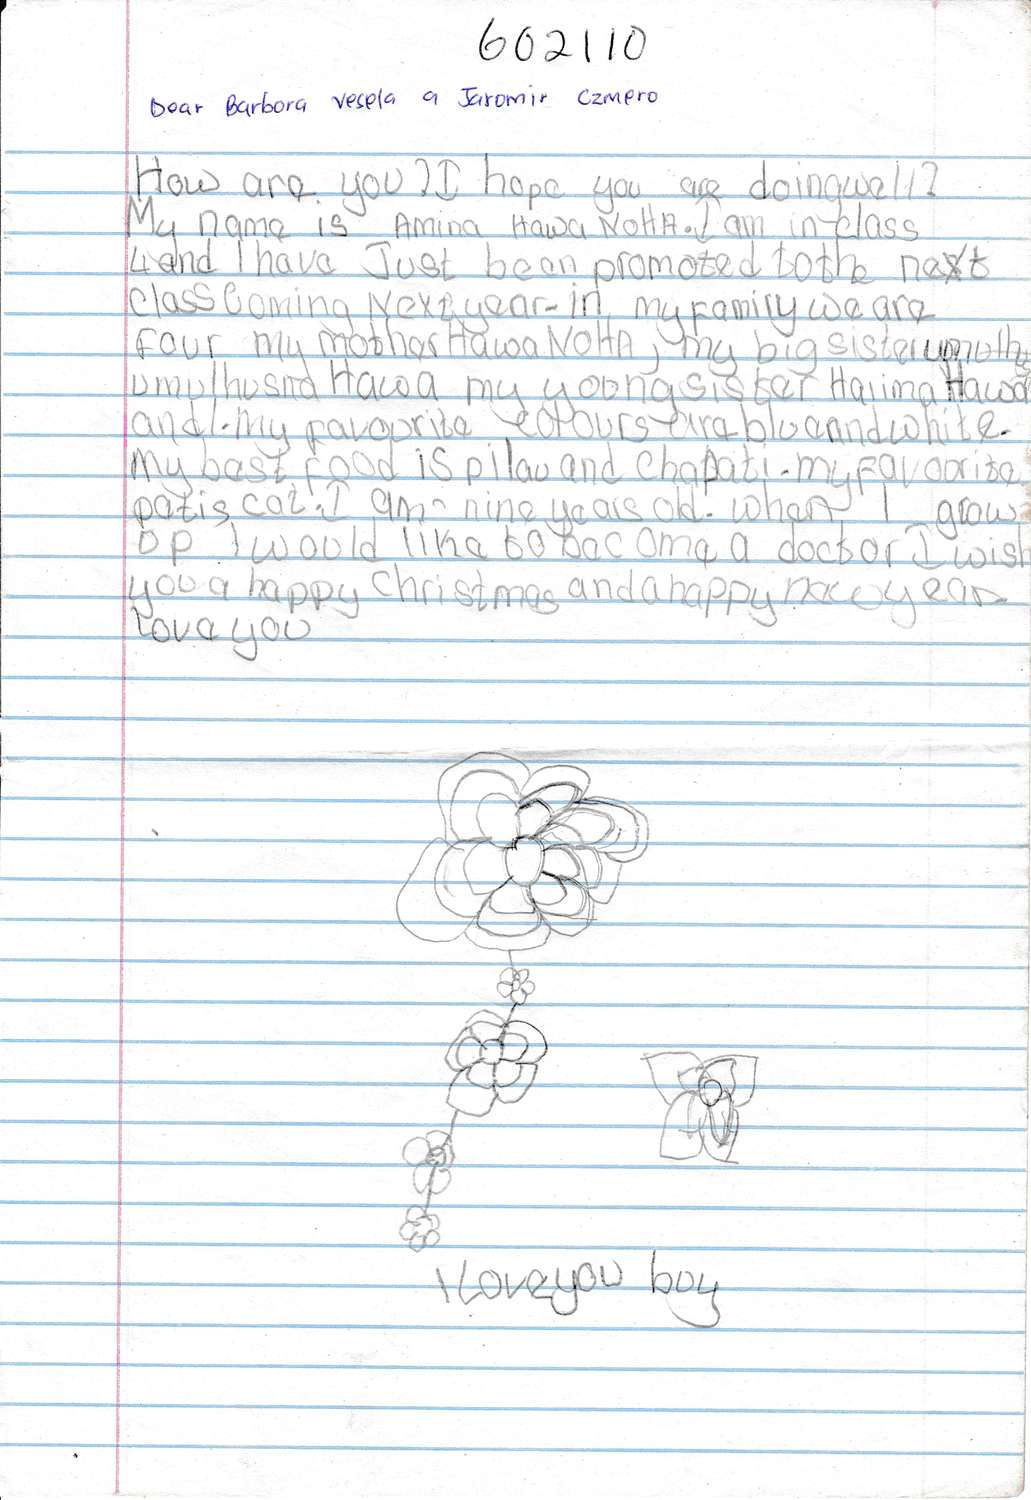 602110
Dear Barbora vesela a Jaromir Czmero
How are you? I hope you are doing well?
My name is Amina Hawa NOHA. I am in class
4 and I have Just been promoted to the next
class coming Next year. in my family we are
four my mother Hawa NOHA, my big sister
umulhusna Hawa my young sister Halima Hawa
and I. my favourite colours are blue annd white.
my best food is pilau and chapati. my favourite
pet is cat. I am nine years old. when I grow
up I would like to become a doctor I wish
you a happy christmas and a happy new year
love you
I Love you boy